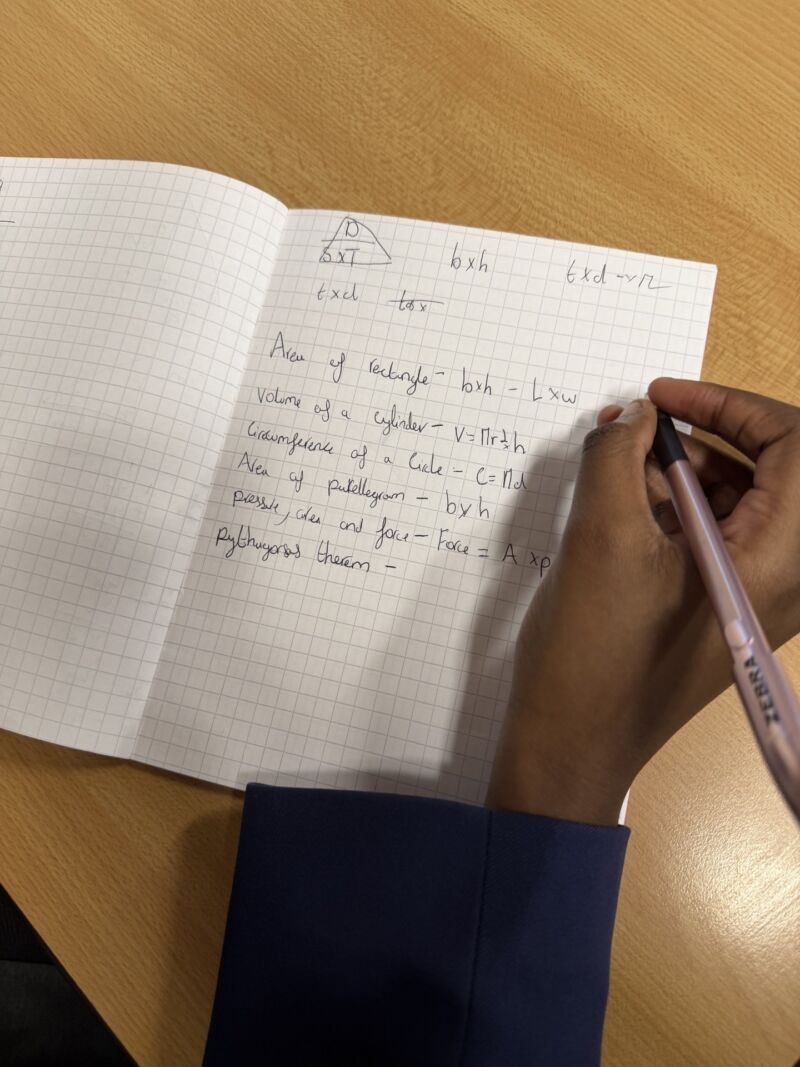 D
S x T
b x h
t x d
t x d
Area of rectangle - b x h - L x w
Volume of a cylinder - V = πr² x h
Circumference of a Circle - C = πd
Area of parellegram - b x h
pressure, area and force - Force = A x p
pythagoras therem -
ZEBRA